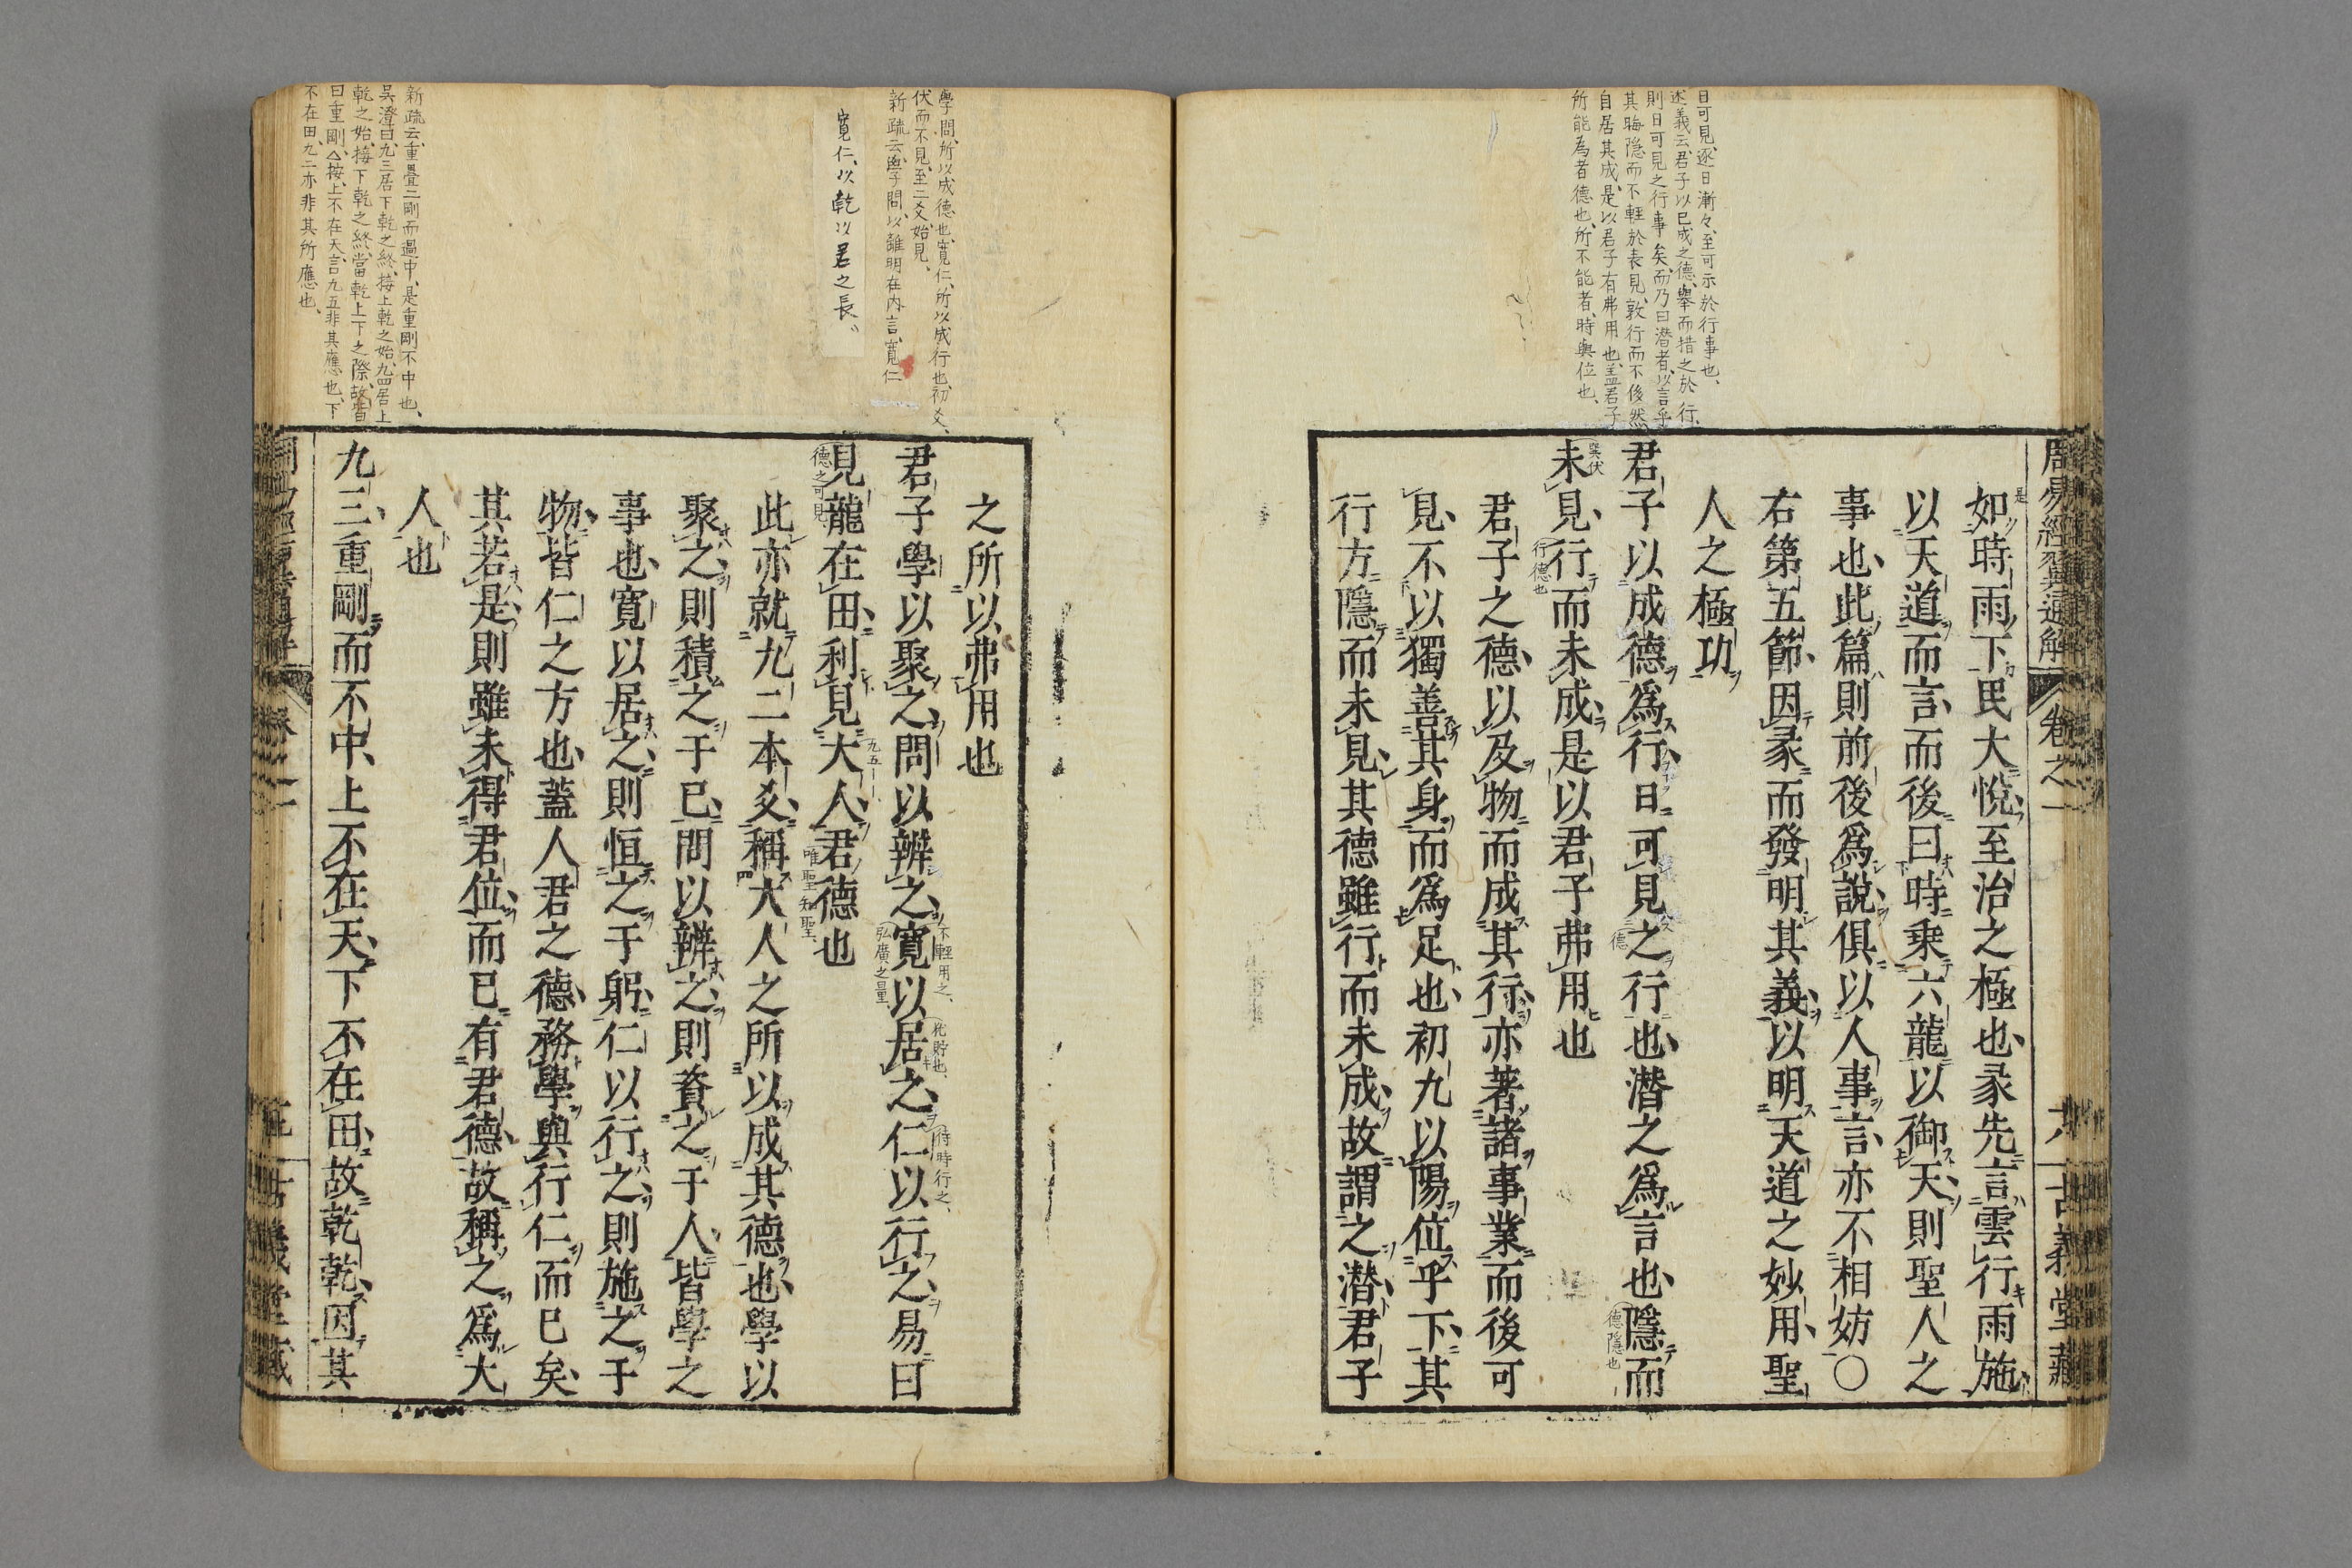 日可見、逐日漸々、至可示於行事也、
述義云、君子以已成之德、舉而措之於行、
則日可見之行事矣、而乃曰潜者、以言乎
其晦隠而不輕於表見、敦行而不後然
自居其成、是以君子有弗用也、盖君子
所能為者德也、所不能者、時與位也、
周易經翼通解 卷之一 六 古義堂藏
如時雨下民大悅至治之極也彖先言雲行雨施
以天道而言而後曰時乗六龍以御天則聖人之
事也此篇則前後爲說俱以人事言亦不相妨〇
右第五節因彖而發明其義以明天道之妙用聖
人之極功
君子以成德爲行日可見之行也潜之爲言也隱而
德隱也
未見行而未成是以君子弗用也
行德也
君子之德以及物而成其行亦著諸事業而後可
見不以獨善其身而爲足也初九以陽位乎下其
行方隱而未見其德雖行而未成故謂之潜君子
學問、所以成德也、寛仁、所以成行也、初爻、
伏而不見、至二爻、始見、
新疏云、學問、以離明在内言、寛仁
寛仁、以乾以君之長、
新疏云、重疊二剛而過中、是重剛不中也、
吳澄曰、九三居下乾之終、接上乾之始、九四居上
乾之始、接下乾之終、當乾上下之際、故皆
曰重剛、△按、上不在天、言九五非其應也、下
不在田、九二亦非其所應也、
之所以弗用也
君子學以聚之問以辨之寛以居之仁以行之易曰
不輕用之、
待時行之、
弘廣之量
見龍在田利見大人君德也
德之可見
九五
唯聖知聖
此亦就九二本爻稱大人之所以成其德也學以
聚之則積之于已問以辨之則資之于人皆學之
事也寛以居之則恒之于躬仁以行之則施之于
物皆仁之方也蓋人君之德務學與行仁而已矣
其若是則雖未得君位而已有君德故稱之爲大
人也
九三重剛而不中上不在天下不在田故乾乾因其